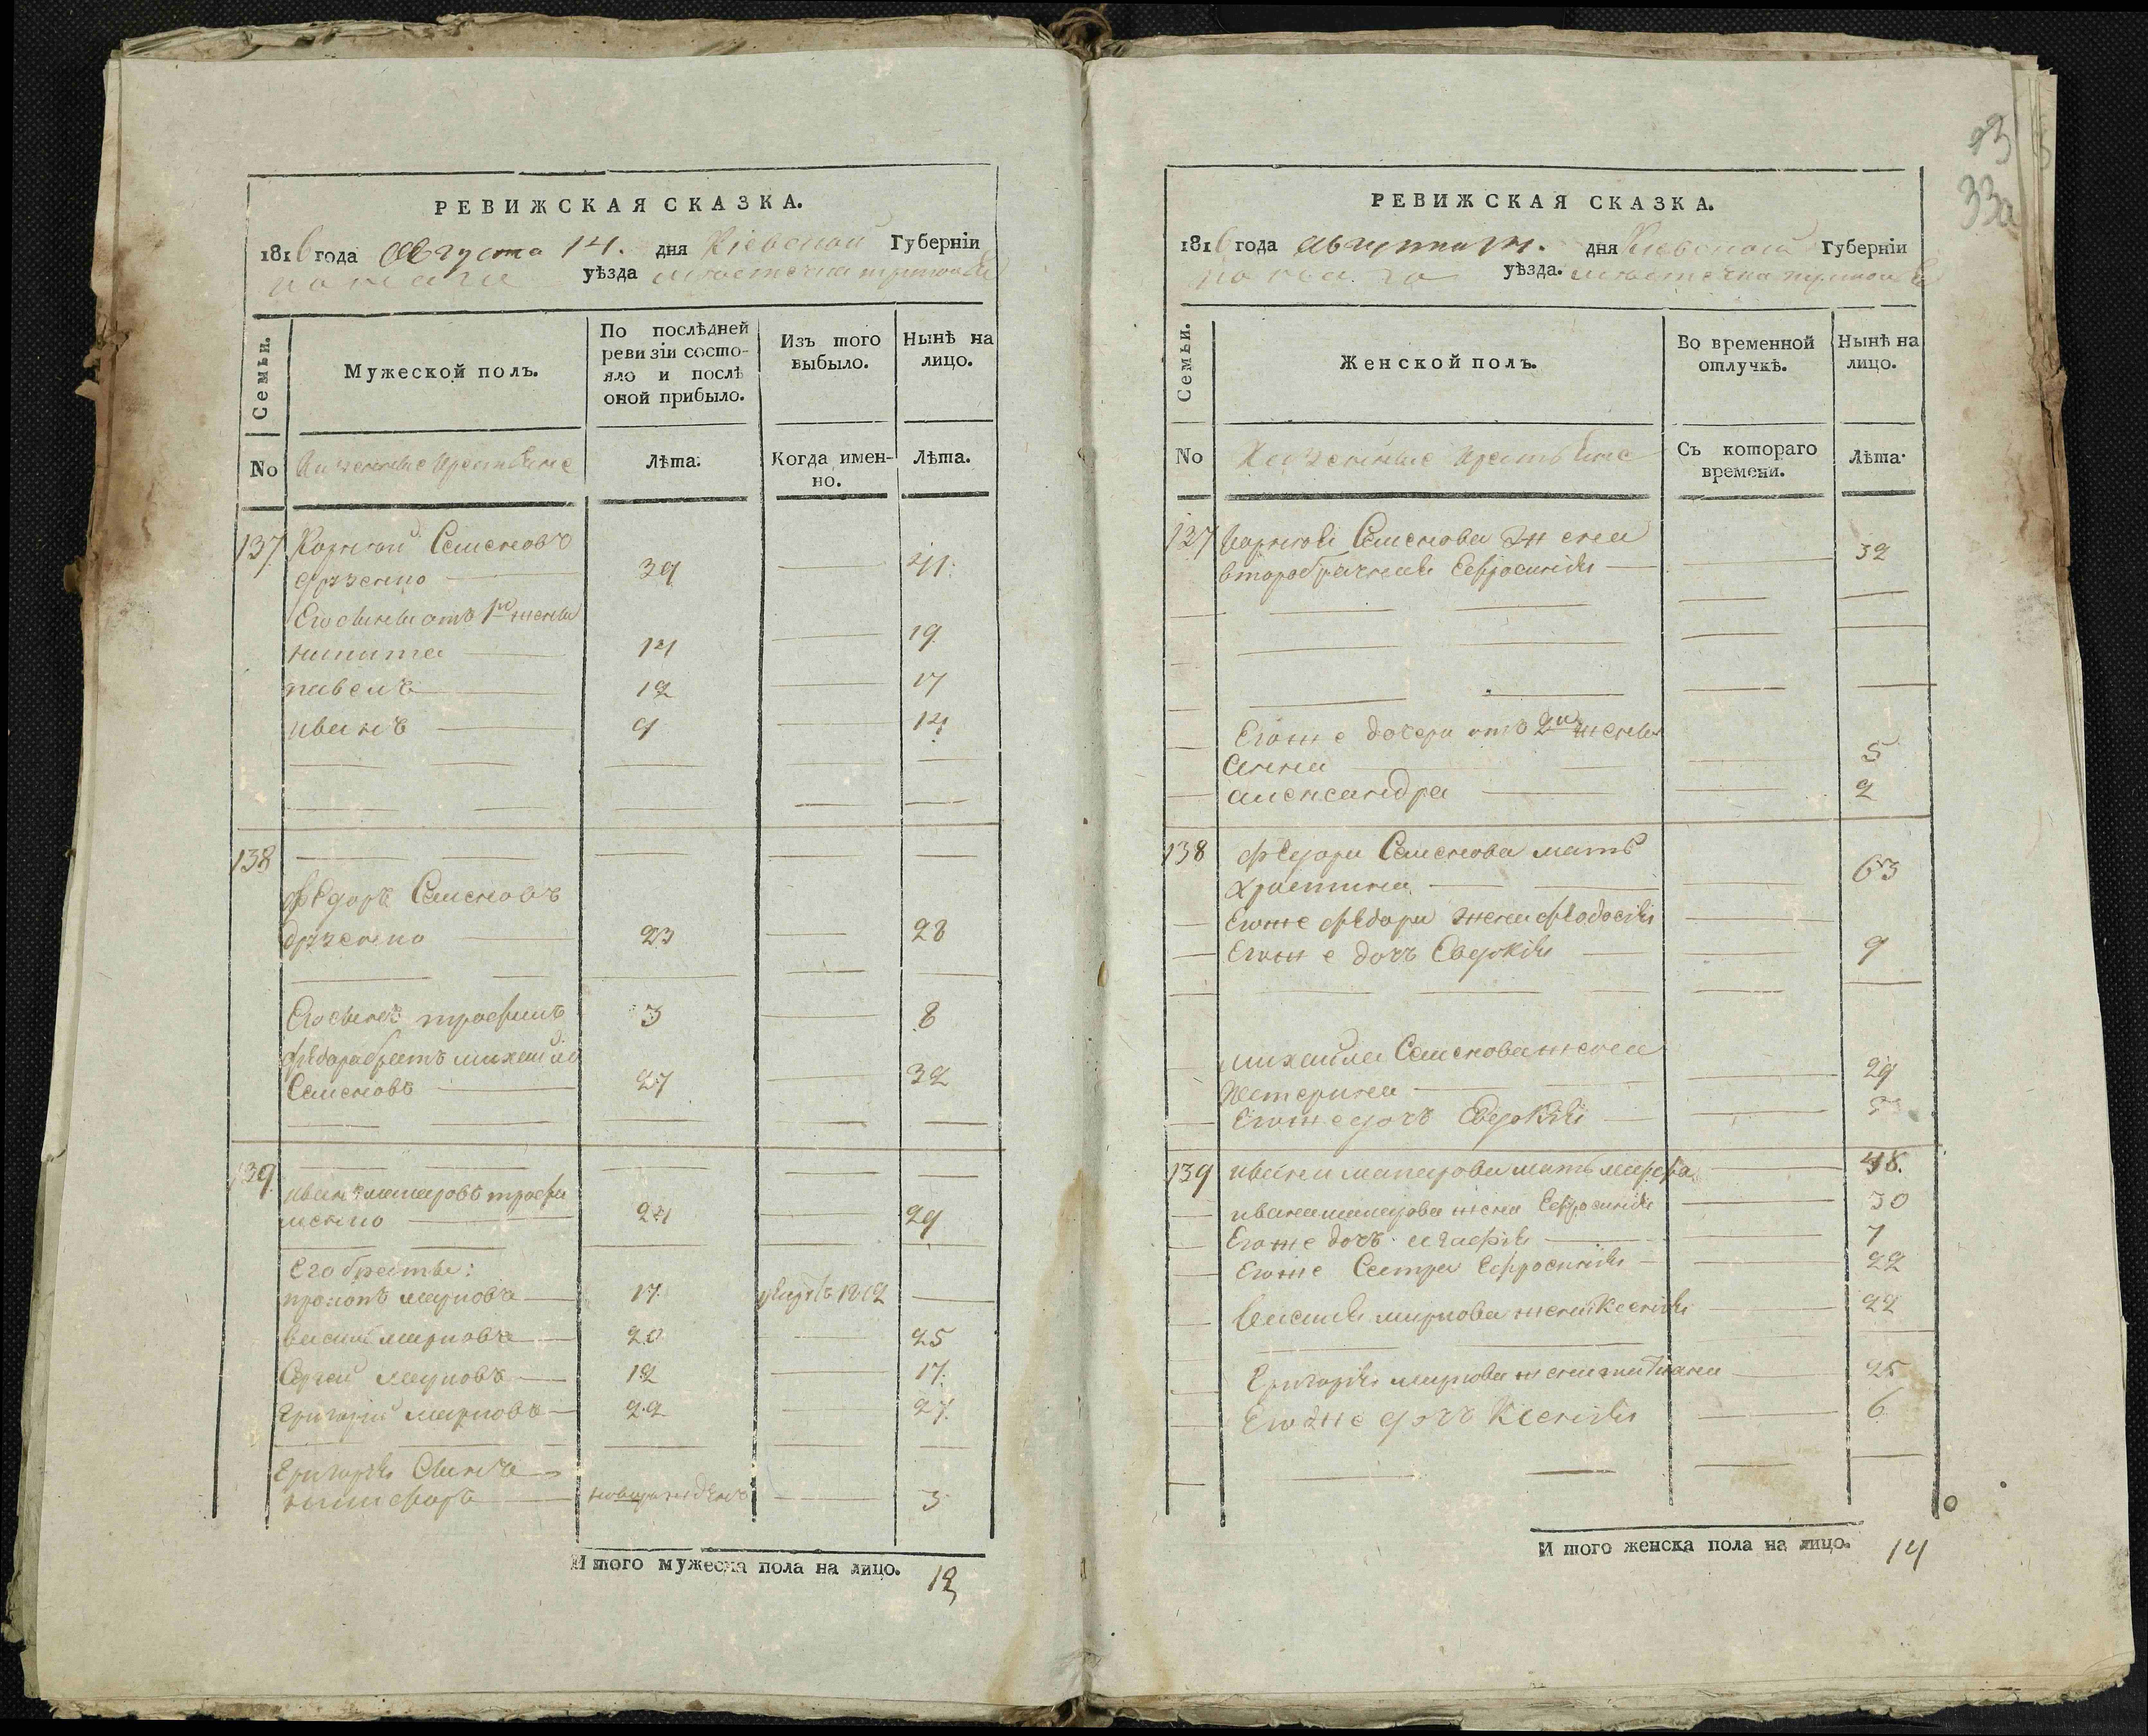 РЕВИЖСКАЯ СКАЗКА.
1816 года Августа 14. дня Кіевской Губерніи
уѣзда местечка
Семьи.
Мужеской полъ.
По послѣдней ревизіи состояло и послѣ оной прибыло.
Изъ того выбыло.
Нынѣ на лицо.
No
Лѣта.
Когда именно.
Лѣта.
137 Корней Семеновъ
39 41
Его сыны отъ 1й жены
никита 14 19
павелъ 12 17
иванъ 9 14
138
фѣдоръ Семеновъ
23 28
Его сынъ трофимъ 3 8
фѣдора братъ михайло
Семеновъ 27 32
139
иванъ макаровъ трофи
менко 24 29
Его братья:
прокопъ марковъ 17 умръ 1812
василь марковъ 20 25
Сергей марковъ 12 17
Григорій марковъ 22 27
Григорія Сынъ
никифоръ новорожденъ 3
Итого мужеска пола на лицо. 13
33
33а
РЕВИЖСКАЯ СКАЗКА.
1816 года августа 14. дня Кіевской Губерніи
уѣзда. местечка
Семьи.
Женской полъ.
Во временной отлучкѣ.
Нынѣ на лицо.
No
Съ котораго времени.
Лѣта.
137 Корнея Семенова жена
второбрачная Ефросинія 32
Егож е дочери отъ 2й жены
Анна 5
александра 2
138 фѣдора Семенова мать
Христина 63
Егоже фѣдора жена феодосія
Егож е дочь Евдокія 9
михайла Семенова жена
Катерина 29
Егоже дочь Евдокія
139 ивана макарова мать марфа 48.
ивана макарова жена Ефросинія 30
Егоже дочь агафія 7
Егоже Сестра Ефросинія 22
Василя маркова жена Ксенія 22
Григорія маркова жена татиана 25
Егоже дочь Ксенія 6
Итого женска пола на лицо. 14